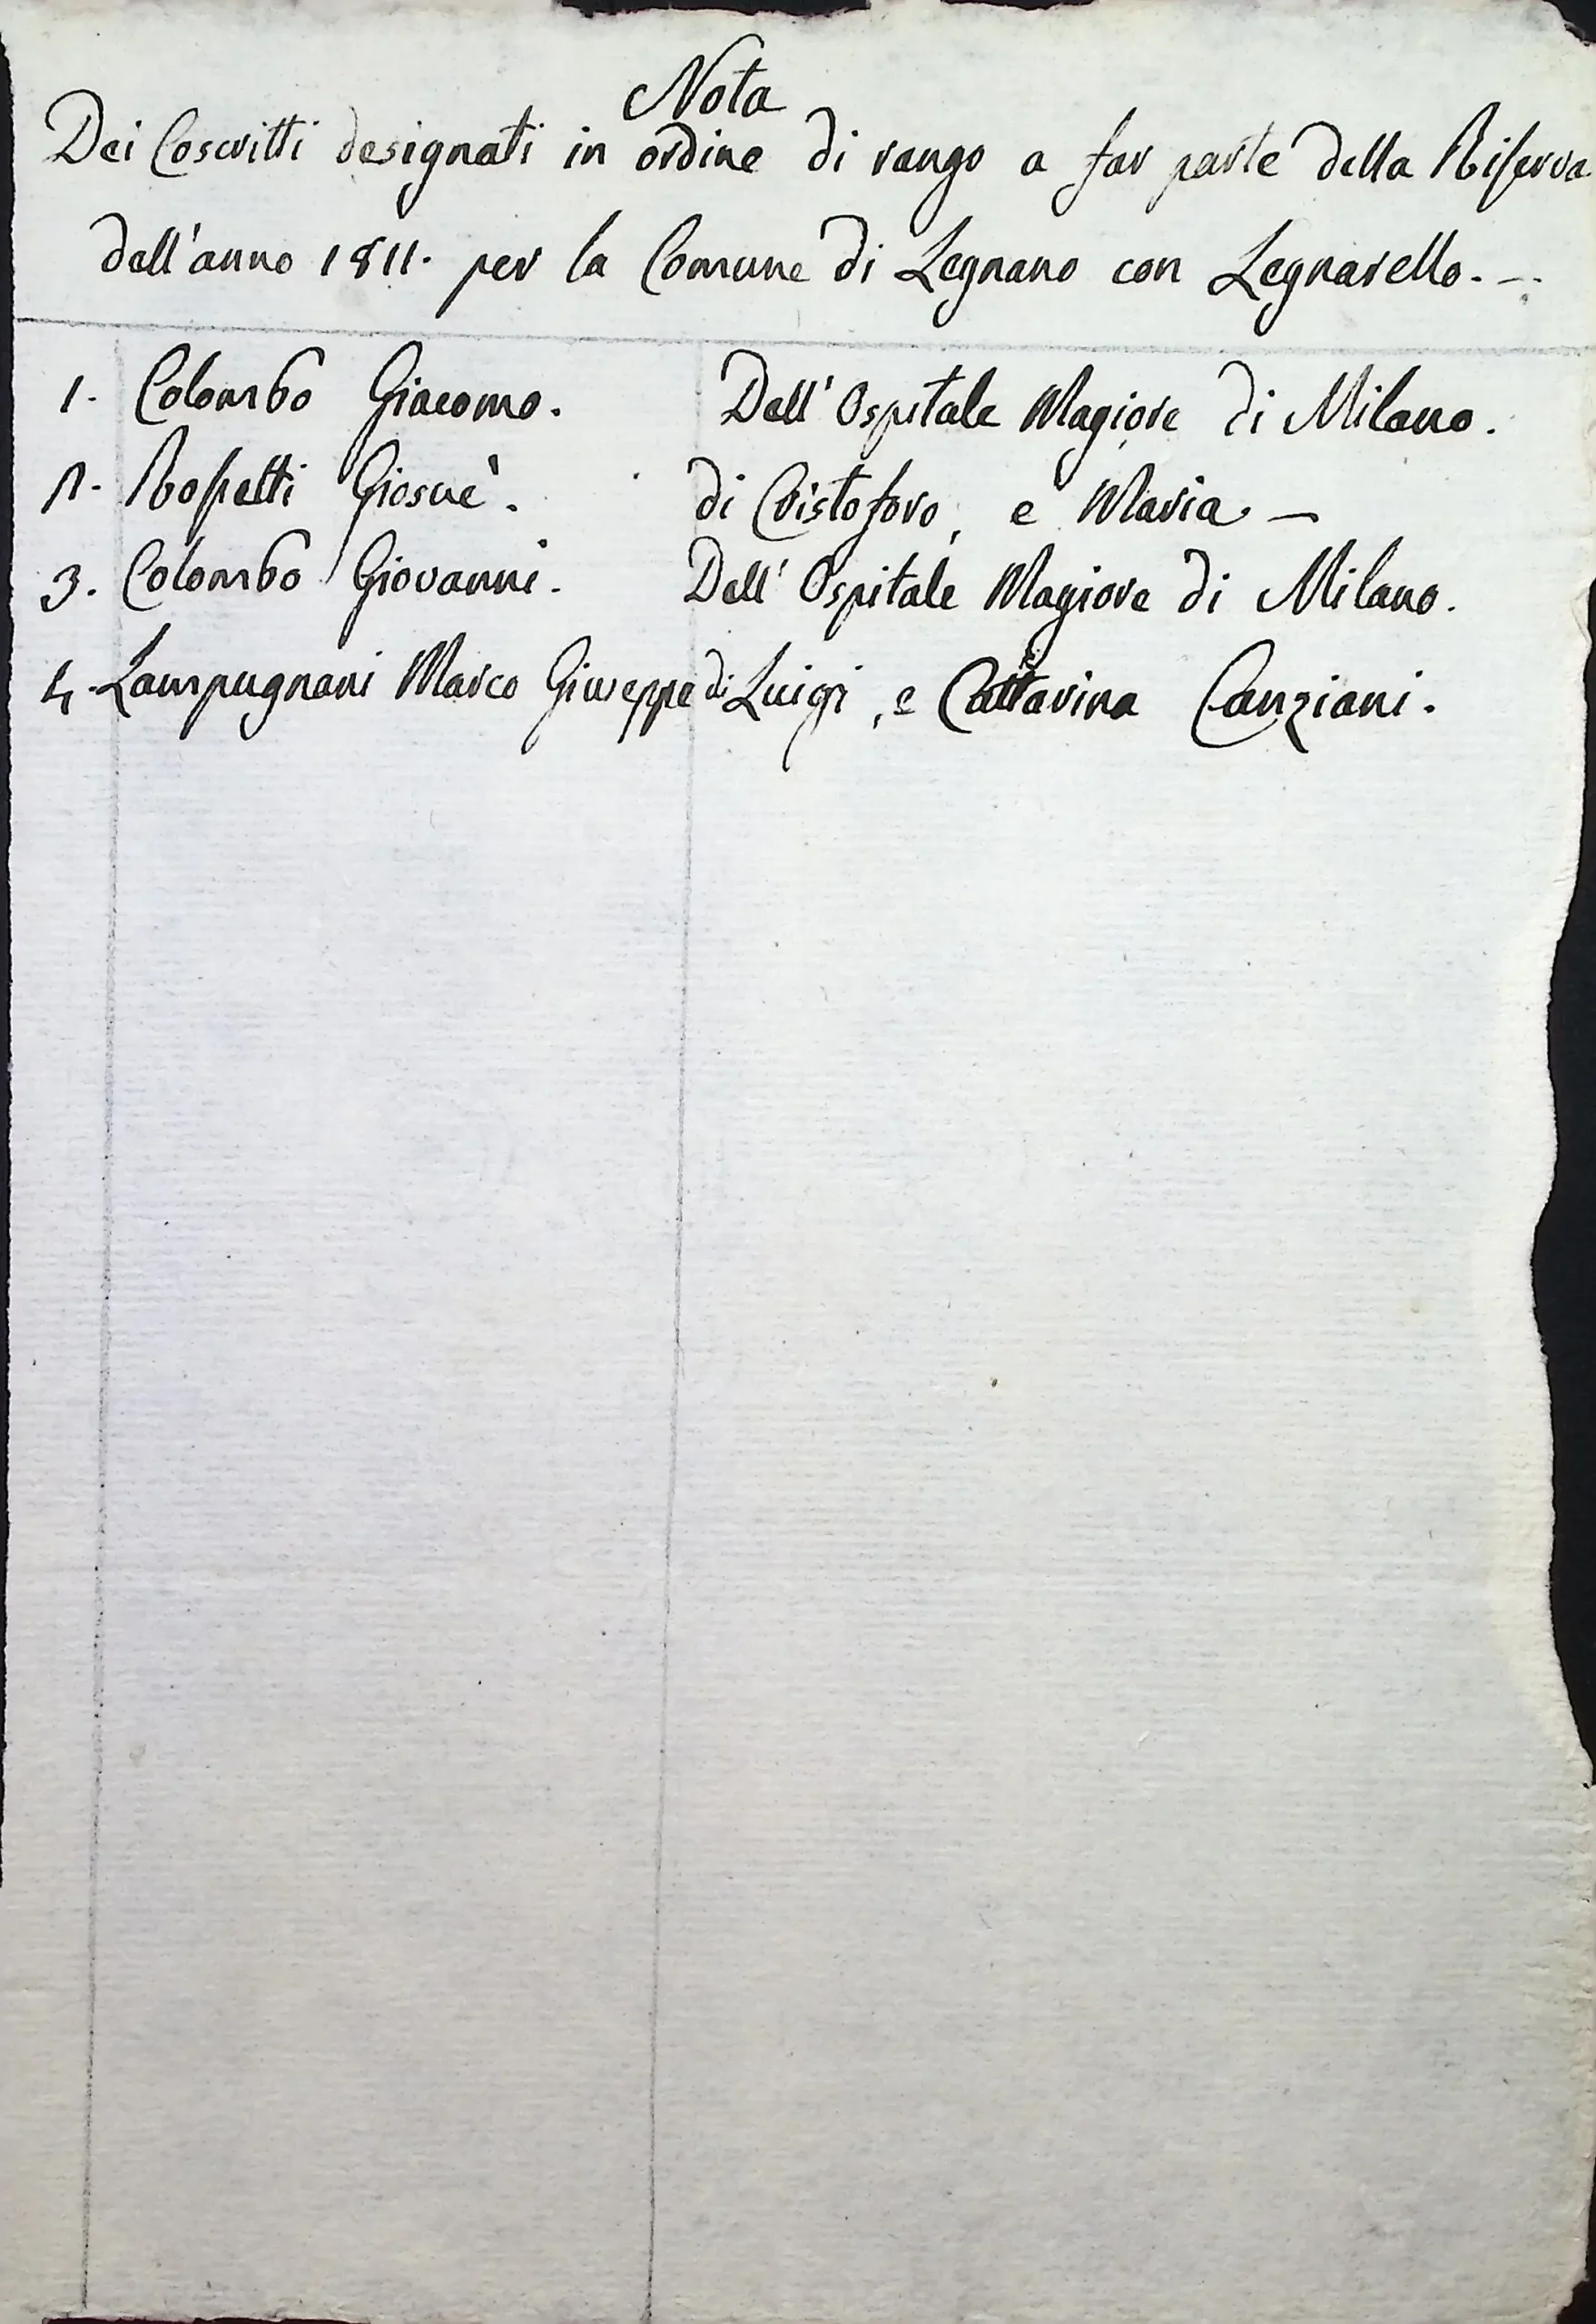 Nota
Dei Coscritti designati in ordine di rango a far parte della Riserva
dell'anno 1811. per la Comune di Legnano con Legnarello. -
1. Colombo Giacomo. Dell' Ospitale Magiore di Milano.
2. Rossetti Giosuè. di Cristoforo, e Maria -
3. Colombo Giovanni. Dell' Ospitale Magiore di Milano.
4. Lampugnani Marco Giuseppe di Luigi, e Cattarina Canziani.